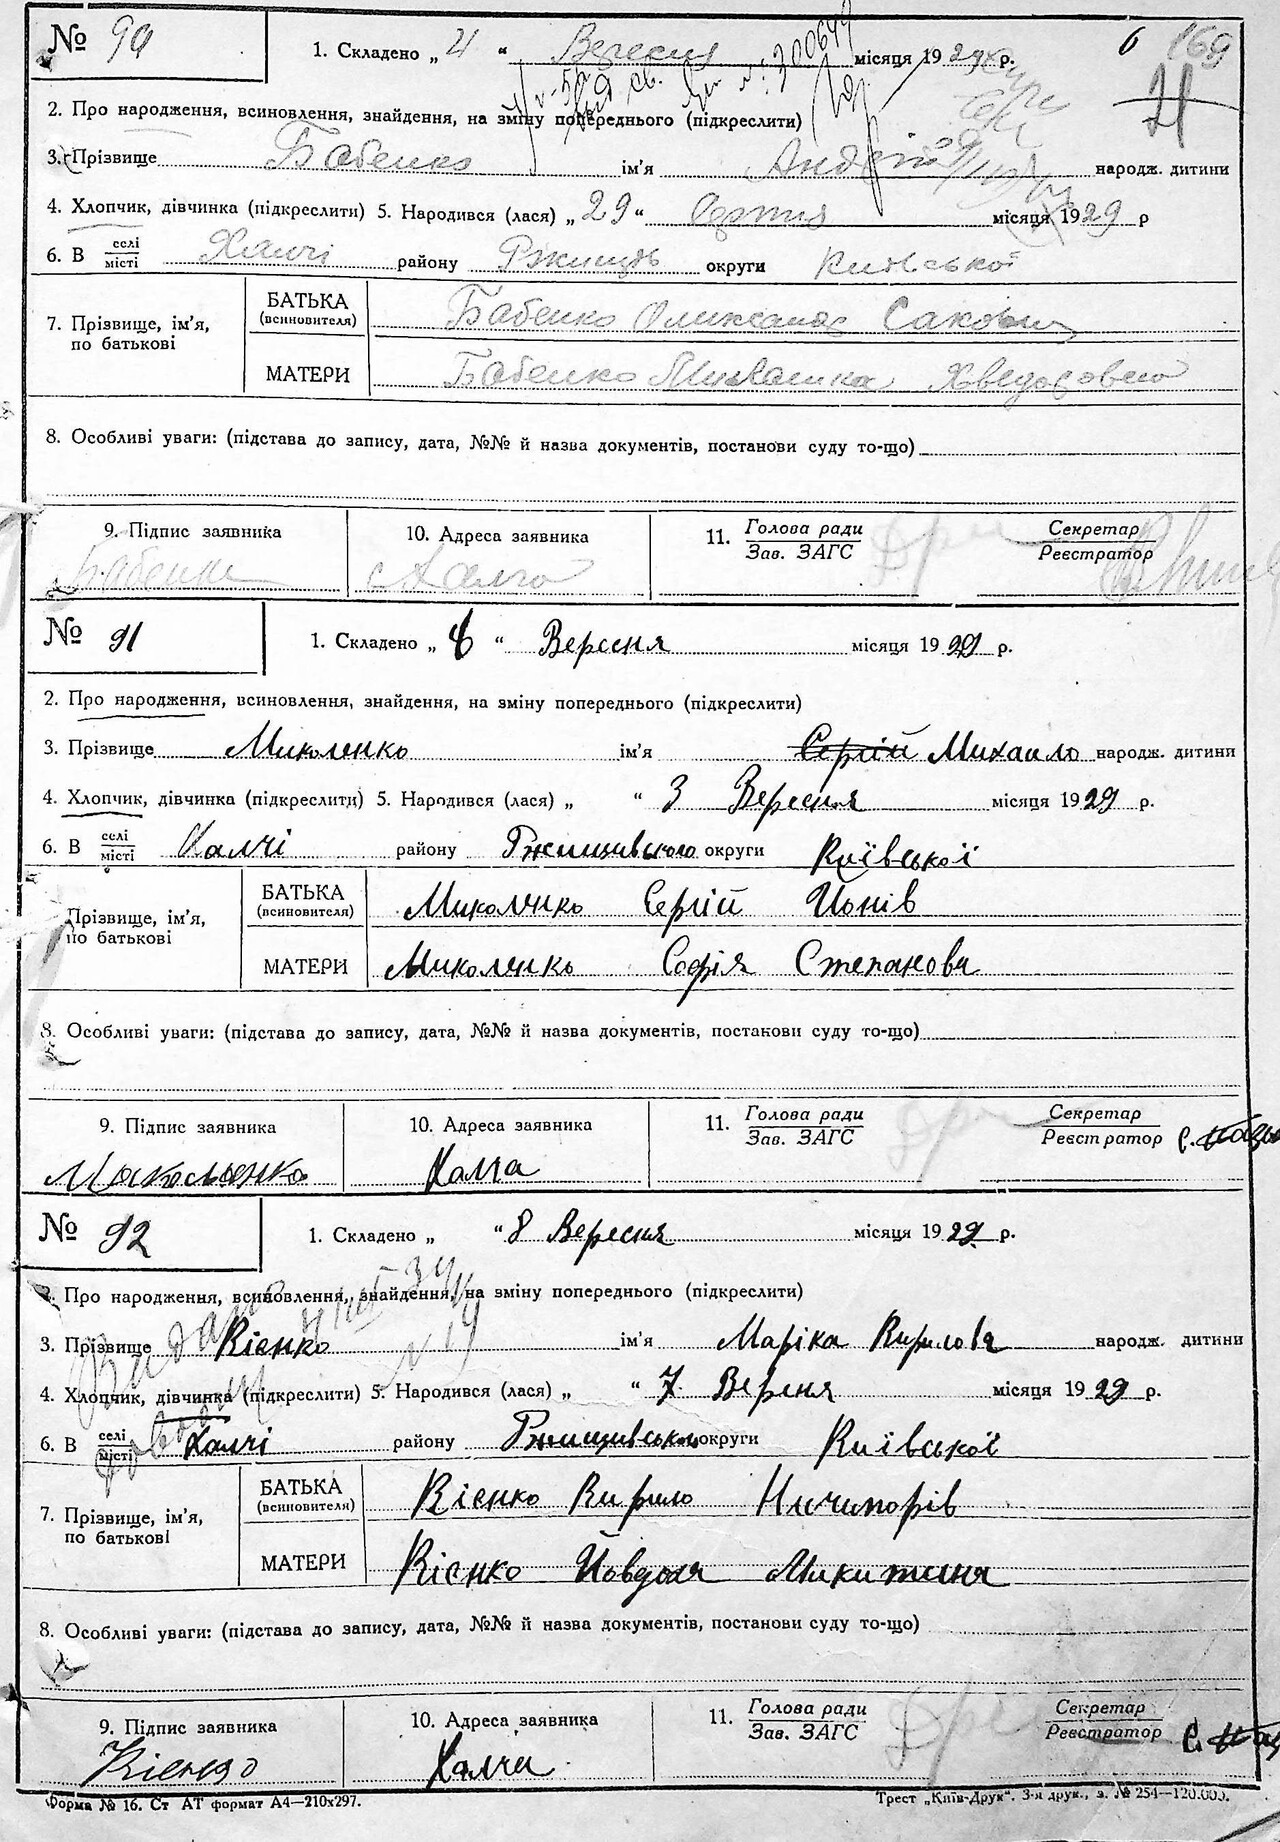 № 90 1. Складено „ 4 “ Вересня місяця 1929 р. 6 169
21
2. Про народження, всиновлення, знайдення, на зміну попереднього (підкреслити)
3. Прізвище Бабенко ім’я Андрій народж. дитини
4. Хлопчик, дівчинка (підкреслити) 5. Народився (лася) „ 29 “ Серпня місяця 1929 р
6. В селі/місті Халчі району Ржищів округи Київської
7. Прізвище, ім’я, по батькові
БАТЬКА (всиновителя) Бабенко Олександр Сакович
МАТЕРИ Бабенко Хведоровна
8. Особливі уваги: (підстава до запису, дата, №№ й назва документів, постанови суду то-що)
9. Підпис заявника 10. Адреса заявника 11. Голова ради/Зав. ЗАГС Секретар/Реєстратор
Бабенко с Халча
№ 91 1. Складено „ 8 “ Вересня місяця 1929 р.
2. Про народження, всиновлення, знайдення, на зміну попереднього (підкреслити)
3. Прізвище Миколенко ім’я Сергій Михаило народж. дитини
4. Хлопчик, дівчинка (підкреслити) 5. Народився (лася) „ “ 3 Вересня місяця 1929 р.
6. В селі/місті Халчі району Ржищивського округи Київської
Прізвище, ім’я, по батькові
БАТЬКА (всиновителя) Миколенко Сергій Йонів
МАТЕРИ Миколенко Софія Степанова
8. Особливі уваги: (підстава до запису, дата, №№ й назва документів, постанови суду то-що)
9. Підпис заявника 10. Адреса заявника 11. Голова ради/Зав. ЗАГС Секретар/Реєстратор
Миколенко Халча
№ 92 1. Складено „ “ 8 Вересня місяця 1929 р.
2. Про народження, всиновлення, знайдення, на зміну попереднього (підкреслити)
3. Прізвище Кієнко ім’я Маріка Кирилова народж. дитини
4. Хлопчик, дівчинка (підкреслити) 5. Народився (лася) „ “ 7 Версня місяця 1929 р.
6. В селі/місті Халчі району Ржищивського округи Київської
7. Прізвище, ім’я, по батькові
БАТЬКА (всиновителя) Кієнко Кирило Ничипорів
МАТЕРИ Кієнко Йовдоля Микитина
8. Особливі уваги: (підстава до запису, дата, №№ й назва документів, постанови суду то-що)
9. Підпис заявника 10. Адреса заявника 11. Голова ради/Зав. ЗАГС Секретар/Реєстратор
Кієнко Халчи
Форма № 16. Ст АТ формат А4—210х297. Трест „Київ-Друк“. 3-я друк., з. № 254—120.000.